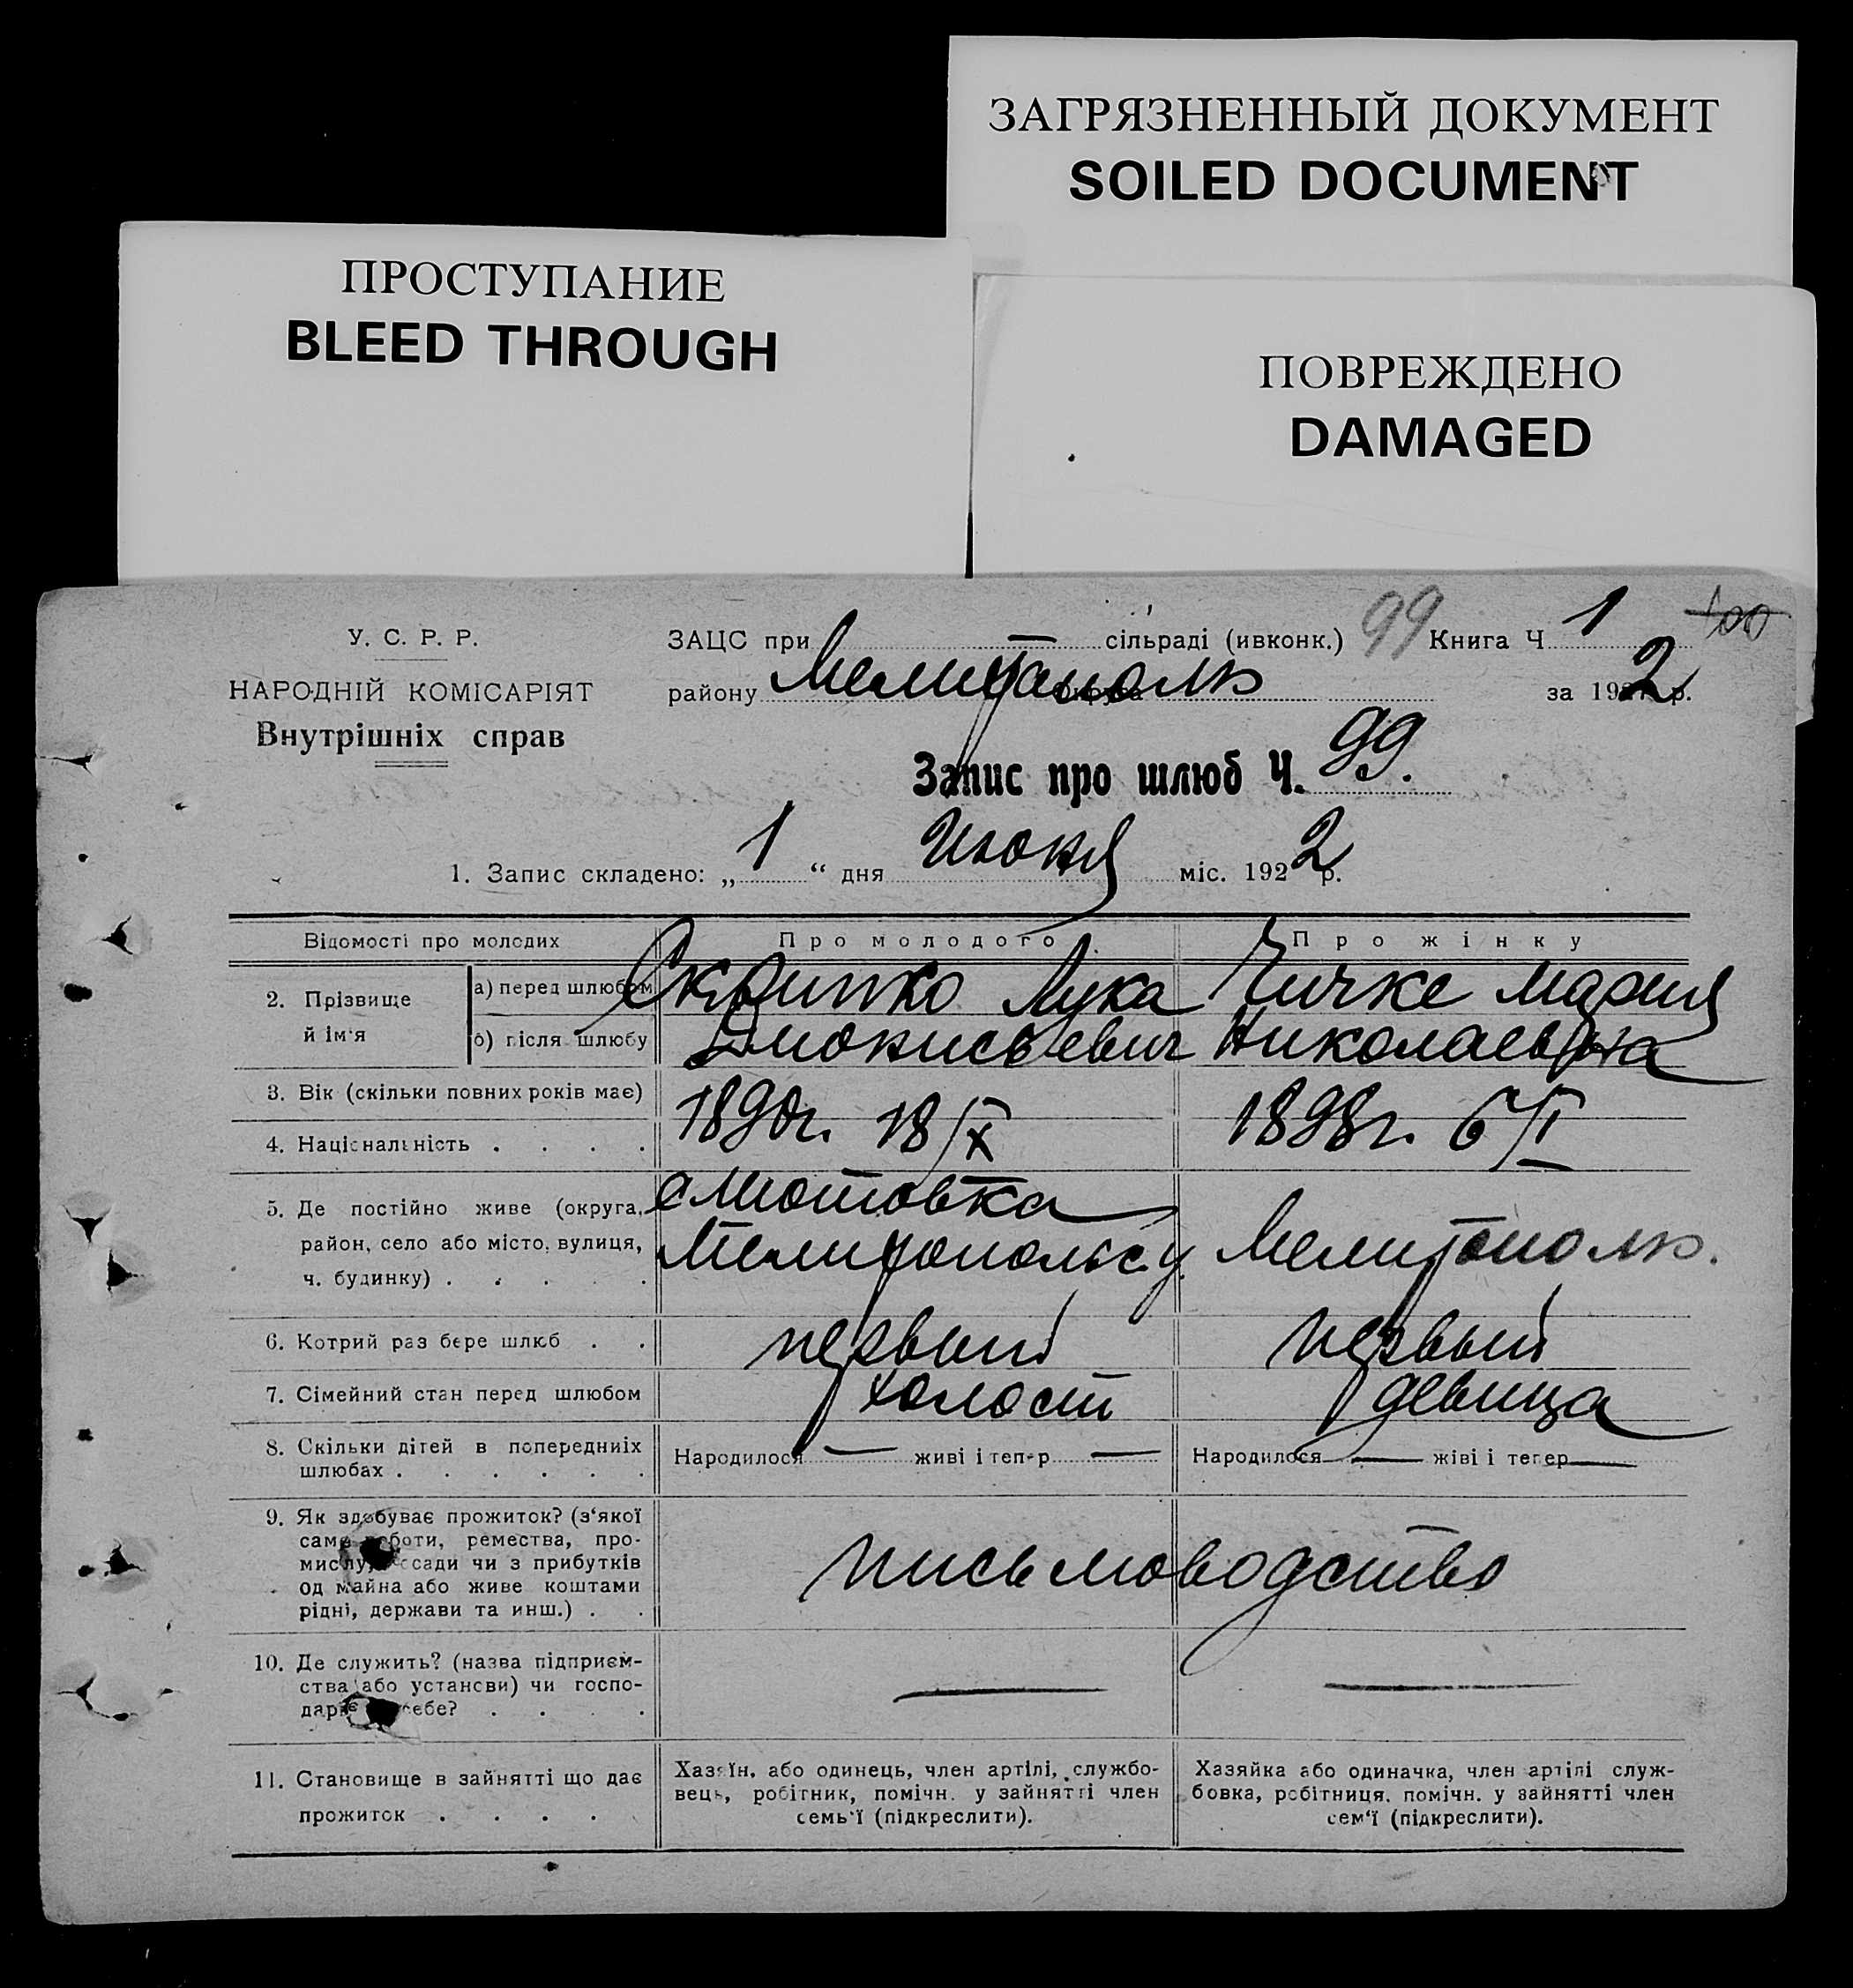 ЗАГРЯЗНЕННЫЙ ДОКУМЕНТ
SOILED DOCUMENT
ПРОСТУПАНИЕ
BLEED THROUGH
ПОВРЕЖДЕНО
DAMAGED
У. С. Р. Р.
НАРОДНІЙ КОМІСАРІЯТ
Внутрішніх справ
ЗАЦС при — сільраді (ивконк.) 99 Книга Ч 1 100
району Мелитополь за 192 2 р.
Запис про шлюб Ч. 99.
1. Запис складено: „ 1 “ дня Июня міс. 192 2 р.
Відомості про молодих
Про молодого
Про жінку
2. Прізвище й ім'я
а) перед шлюбом
б) після шлюбу
Скрипко Лука
Дионисьевич
Чичке Мария
Николаевна
3. Вік (скільки повних років має)
4. Національність . . . .
1890г. 18/X
1898г. 6/I
5. Де постійно живе (округа,
район, село або місто, вулиця,
ч. будинку) . . . . .
Мелитопольс. у.
Мелитополь.
6. Котрий раз бере шлюб . .
первый
первый
7. Сімейний стан перед шлюбом
холост
девица
8. Скільки дітей в попередніїх
шлюбах . . . . . .
Народилося — живі і тепер —
Народилося — жіві і тепер —
9. Як здобуває прожиток? (з‘якої
саме роботи, ремества, про-
мислу, посади чи з прибутків
од майна або живе коштами
рідні, держави та инш.) . .
письмоводство
10. Де служить? (назва підприєм-
ства або установи) чи госпо-
дарює себе? . . . .
— —
11. Становище в зайнятті що дає
прожиток . . . .
Хазяїн, або одинець, член артілі, службо-
вець, робітник, помічн. у зайнятті член
семь‘ї (підкреслити).
Хазяйка або одиначка, член артілі служ-
бовка, робітниця, помічн. у зайнятті член
сем‘ї (підкреслити).